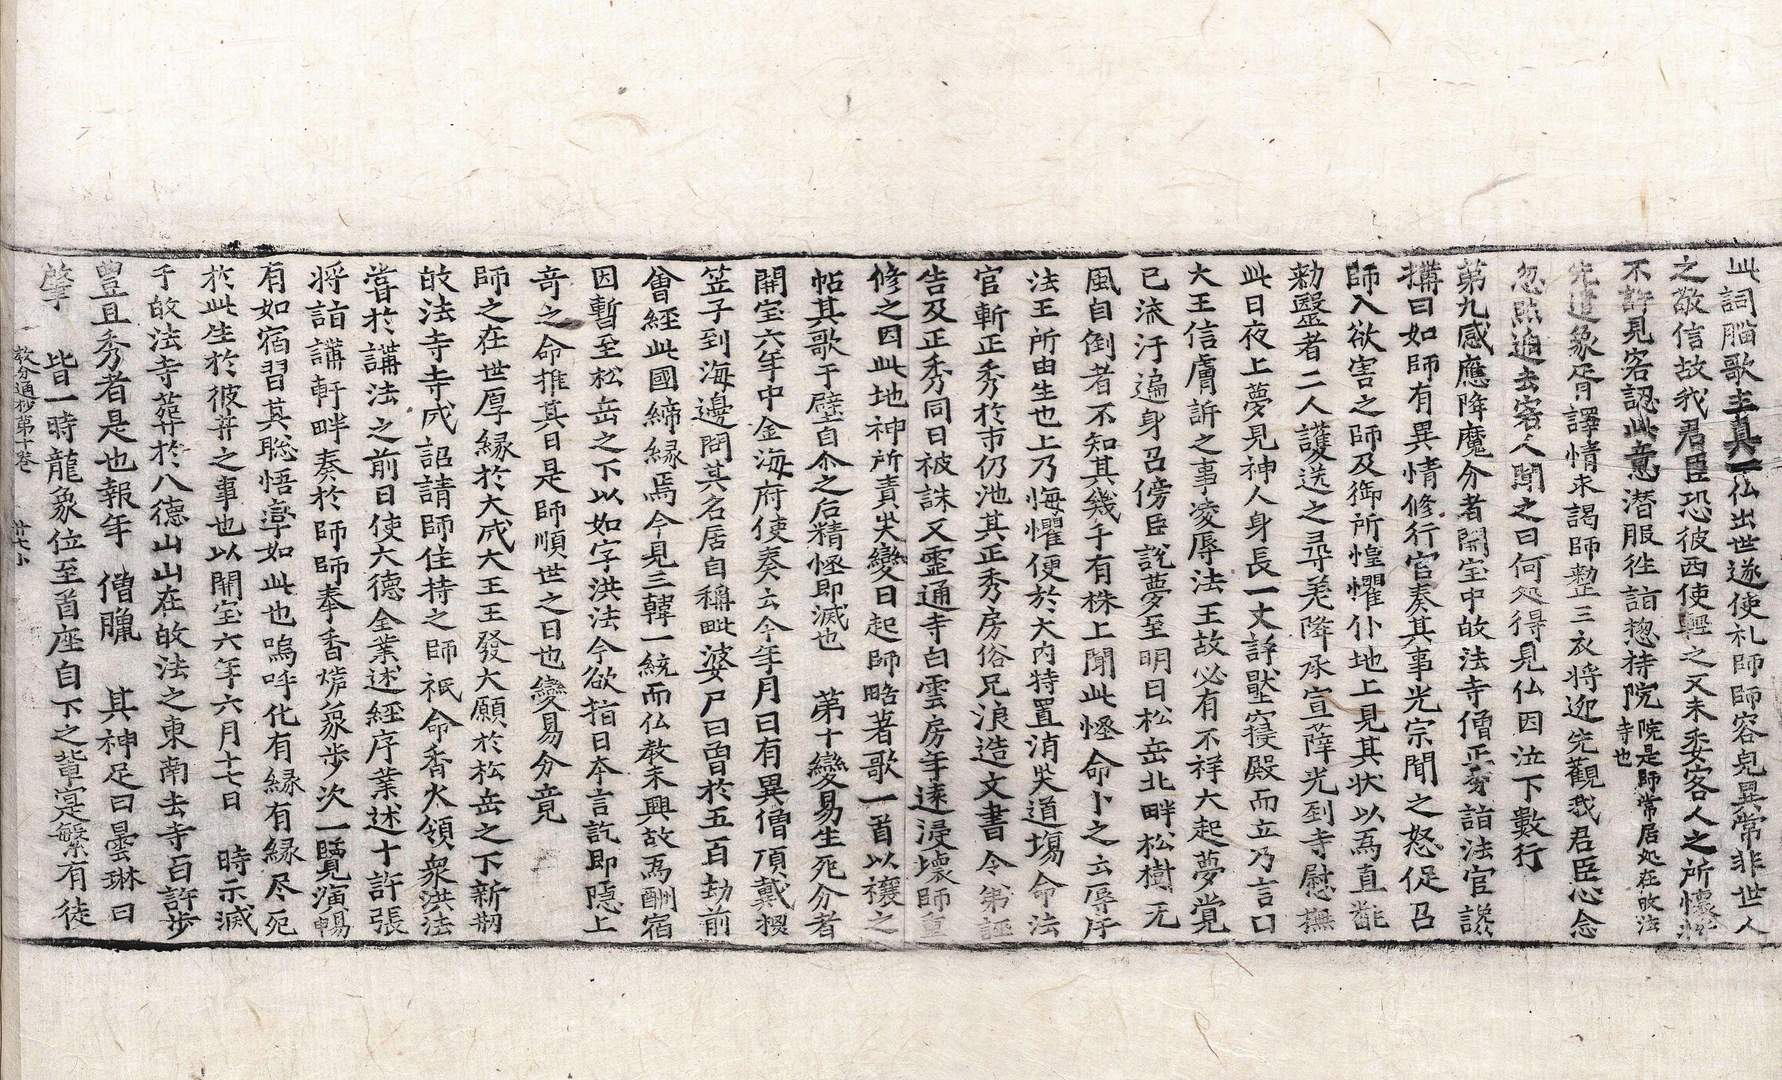 此詞腦歌主真一仏出世遂使礼師師容皃異常非世人
之敬信故我君臣恐彼西使輕之又未委客人之所懷
不許見客認此意潜服徃詣惣持院院是師常居処在㱕法寺也
先遣象胥譯情求謁師整三衣將迎先觀我君臣心念
忽然迴去客人聞之曰何処得見仏因泣下數行
第九感應降魔分者開宝中㱕法寺僧正秀詣法官讒
搆曰如師有異情修行官奏其事光宗聞之怒促召
師入欲害之師及御所惶懼仆地上見其状以爲直䏻
勅毉者二人護送之尋羌降承宣薛光到寺慰撫
此日夜上夢見神人身長一丈許歐寢殿而立乃言曰
大王信膚訢之事凌辱法王故必有不祥大起夢覚
已流汗遍身召傍臣説夢至明日松岳北畔松樹无
風自倒者不知其幾千有株上聞此怪命卜之云辱斥
法王所由生也上乃悔懼便於大内特置消灾道塲命法
官斬正秀於市仍池其正秀房俗兄浪造文書令弟誣
告及正秀同日被誅又霊通寺白雲房年遠浸壞師重
修之因此地神所責灾變日起師略著歌一首以禳之
帖其歌于壁自尒之后精怪即滅也　第十變易生死分者
開宝六年中金海府使奏云今年月日有異僧頂戴椶
笠子到海邊問其名居自稱毗婆尸曰曽於五百劫前
會經此國締縁焉今見三韓一統而仏教未興故爲酬宿
因暫至松岳之下以如字洪法今欲指日夲言訖即隠上
竒之命推其日是師順世之日也變易分竟
師之在世厚縁於大成大王王發大願於松岳之下新刱
㱕法寺寺成詔請師住持之師祇命香火領衆洪法
甞於講法之前日使六德全業述經序業述十許張
將詣講軒畔奏於師師奉香爐象歩次一覽演暢
有如宿習其聡悟㝈如此也嗚呼化有縁有縁尽死
於此生於彼菩之事也以開宝六年六月十七日　時示滅
于㱕法寺葬於八德山山在㱕法之東南去寺百許歩
豊且秀者是也報年　僧臘　其神足曰曇琳曰
肇　皆一時龍象位至首座自下之輩寔繁有徒
教分通抄第十卷　廿七卜